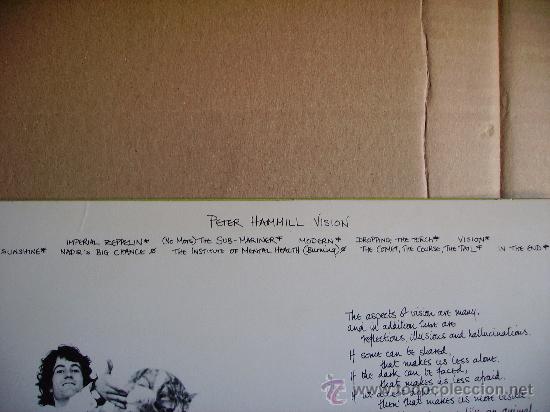 PETER HAMMILL VISION
IMPERIAL ZEPPELIN* (NO MORE) THE SUB-MARINER* MODERN* DROPPING THE TORCH* VISION*
SUNSHINE* NADIR'S BIG CHANCE ø THE INSTITUTE OF MENTAL HEALTH (BURNING) ø THE COMET, THE COURSE, THE TAIL* IN THE END*
The aspects of vision are many,
and in addition there are
reflections, illusions and hallucinations.
If some can be shared,
that makes us less alone.
If the dark can be faced,
that makes us less afraid.
then that makes us more
an animal
todocoleccion.net